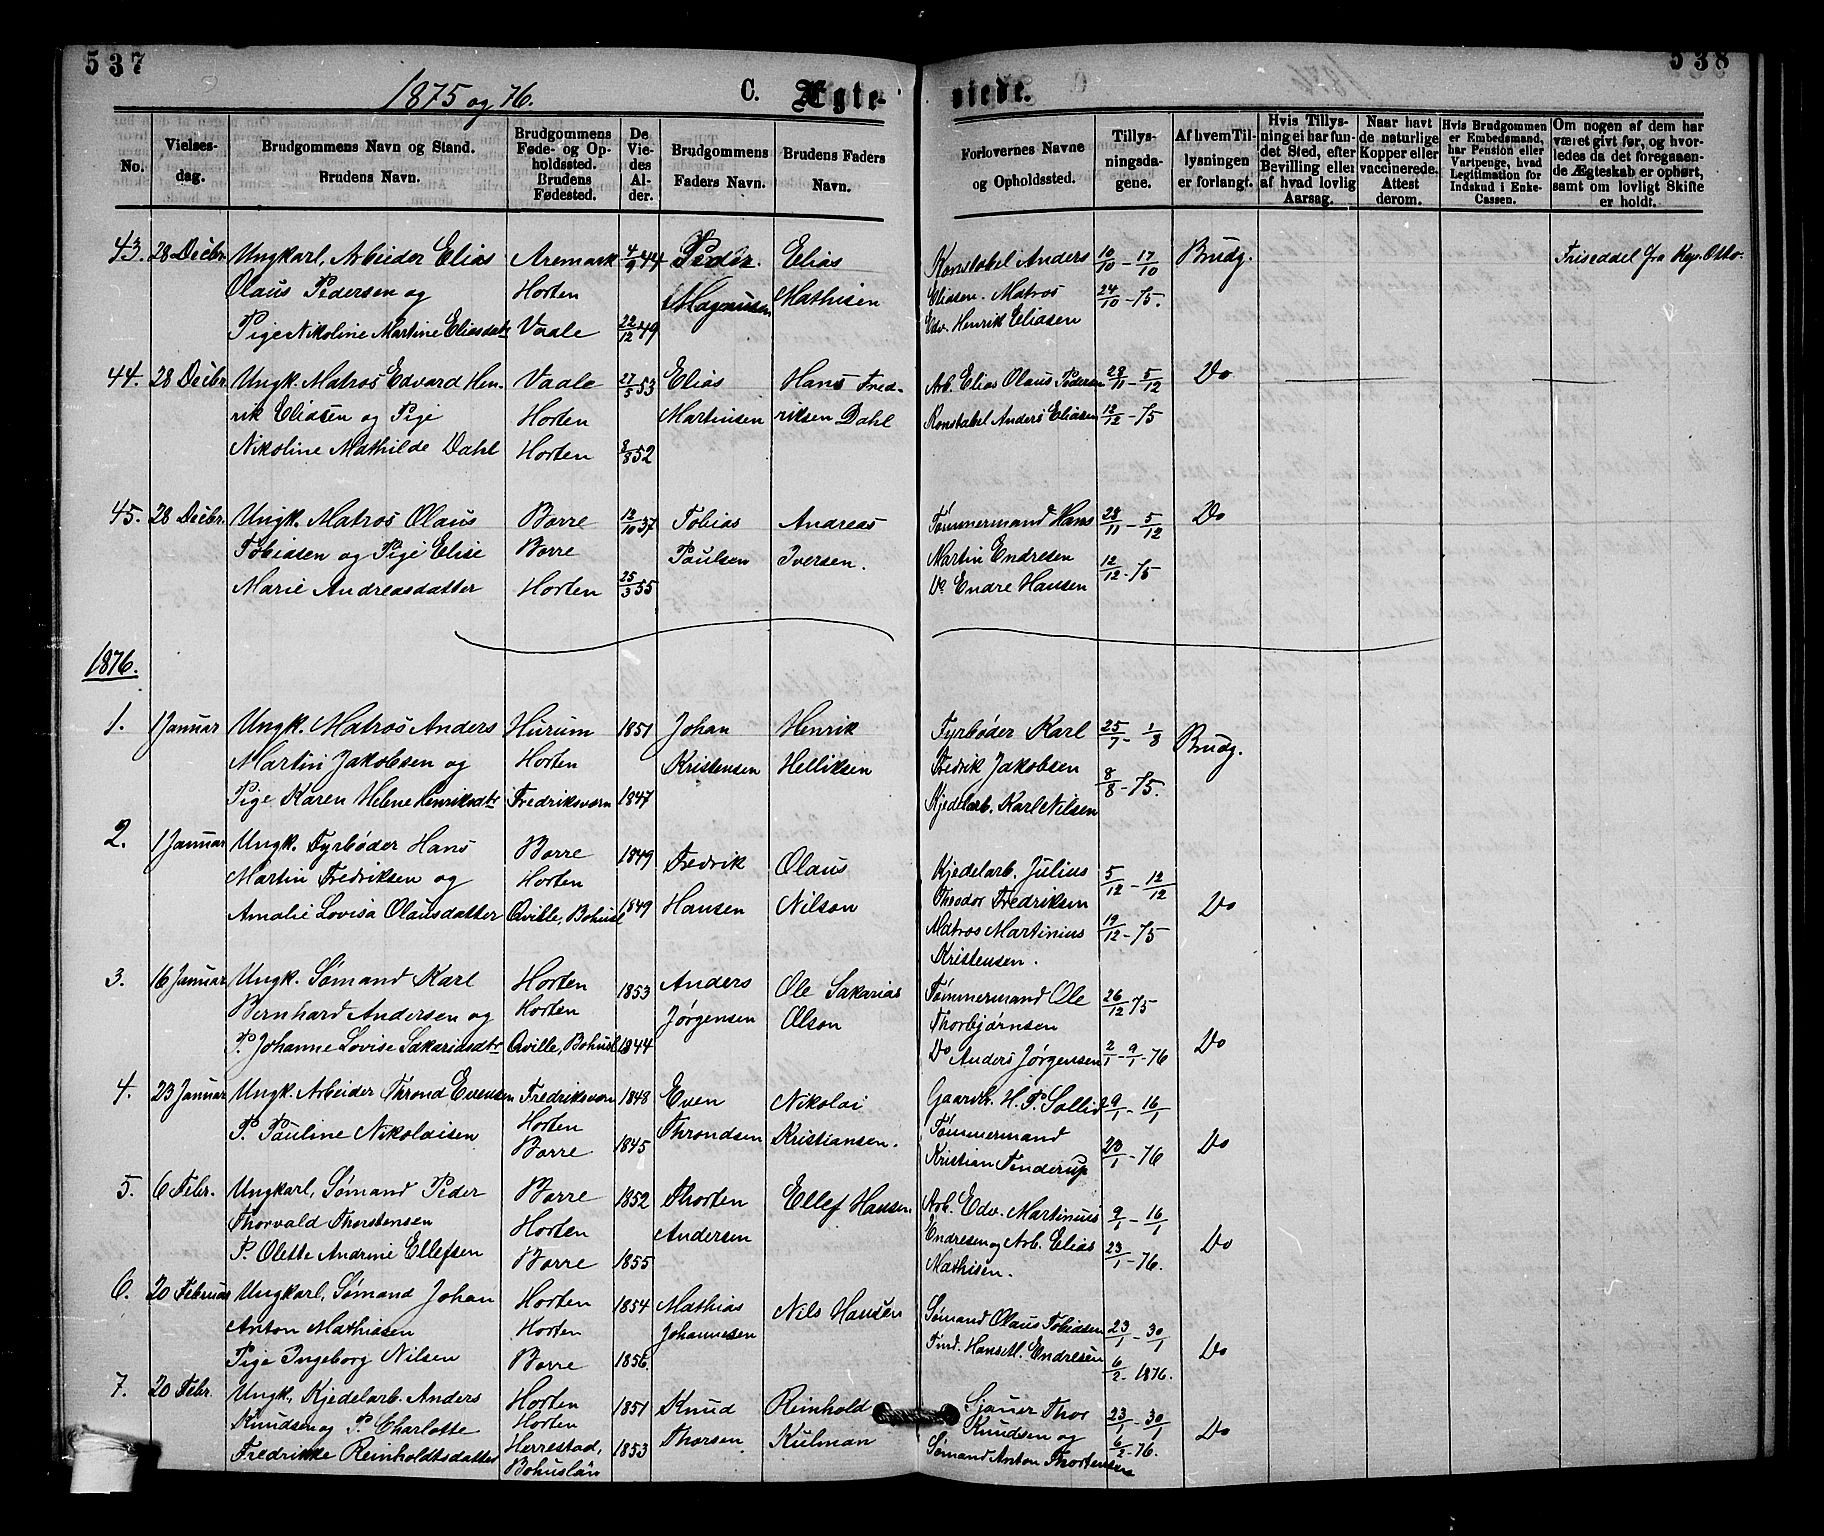 537
538
1875 og 76.
C. Ægteviede.
No.
Vielsesdag.
Brudgommens Navn og Stand.
Brudens Navn.
Brudgommens Føde- og Opholdssted.
Brudens Fødested.
De Viedes Alder.
Brudgommens Faders Navn.
Brudens Faders Navn.
Forlovernes Navne og Opholdssted.
Tillysningsdagene.
Af hvem Tillysningen er forlangt.
Hvis Tillysning ei har fundet Sted, efter Bevilling eller af hvad lovlig Aarsag.
Naar havt de naturlige Kopper eller vaccinerede. Attest derom.
Hvis Brudgommen er Embedsmand, har Pension eller Vartpenge, hvad Legitimation for Indskud i Enke-Cassen.
Om nogen af dem har været givt før, og hvorledes da det foregaaende Ægteskab er ophørt, samt om lovligt Skifte er holdt.
43. 28 Decbr. Ungkarl, Arbeider Elias Aremark 4/9 44 Peder Elias Konstabel Anders 10/10 - 17/10 Brudg. Friseddel fra
Olaus Pedersen og Horten Magnusen Mathisen Eliasen. Matros 24/10 - 75.
Pige Nikoline Martine Eliasdatr Vaale 22/12 49 Edv. Henrik Eliasen
44. 28 Decbr. Ungk. Matros Edvard Hen- Vaale 27/5 53 Elias Hans Fred- Arb. Elias Olaus Pedersen 28/11 - 5/12 Do
rik Eliasen og Pige Horten Martinsen riksen Dahl Konstabel Anders Eliasen 12/12 - 75
Nikoline Mathilde Dahl Horten 8/8 52
45. 28 Decbr. Ungk. Matros Olaus Borre 12/10 37 Tobias Andreas Tømmermand Hans 28/11 - 5/12 Do
Tobiasen og Pige Elise Borre Paulsen Iversen. Martin Endresen 12/12 - 75
Marie Andreasdatter Horten 25/3 55 Do Endre Hansen
1876.
1. 1 Januar Ungk. Matros Anders Hurum 1851 Johan Henrik Fyrbøder Karl 25/7 - 1/8 Brudg.
Martin Jakobsen og Horten Kristensen Helliksen Fredrik Jakobsen 8/8 - 75.
Pige Karen Helene Henriksdtr Fredriksværn 1847 Kjedelarb. Karl Nilsen
2. 1 Januar Ungk. Fyrbøder Hans Borre 1849 Fredrik Olaus Kjedelarb. Julius 5/12 - 12/12 Do
Martin Fredriksen og Horten Hansen Nilson Theodor Fredriksen 19/12 - 75
Amalie Lovisa Olausdatter Qville, Bohusl 1849 Matros Martinius
Kristensen.
3. 16 Januar Ungk. Sømand Karl Horten 1853 Anders Ole Sakarias Tømmermand Ole 26/12 75
Bernhard Andersen og Horten Jørgensen Olson Thorbjørnsen
P. Johanne Lovise Sakariasdtr Qville, Bohusl 1844 Do Anders Jørgensen 2/1 - 9/1 - 76 Do
4. 23 Januar Ungk. Arbeider Thrond Evensen Fredriksværn 1848 Even Nikolai Gaardbr. H. P. Sollid 9/1 - 16/1
P. Pauline Nikolaisen Horten Throndsen Kristiansen. Tømmermand
Borre 1845 Kristian Tenderup 20/1 - 76 Do
5. 6 Febr. Ungkarl, Sømand Peder Borre 1852 Thorten Ellef Hansen Arb. Edv. Martinius 9/1 - 16/1
Thorvald Thorstensen Horten Andersen Endresen og Arb. Elias 23/1 - 76. Do
P. Olette Andrine Ellefsen Borre 1855 Mathisen.
6. 20 Februar Ungkarl, Sømand Johan Horten 1854 Mathias Nils Hansen Sømand Olaus Tobiasen 23/1 - 30/1
Anton Mathiasen Horten Johannesen Endresen 6/2 - 1876. Do
Pige Ingeborg Nilsen Borre 1856.
7. 20 Febr. Ungk. Kjedelarb. Anders Horten 1851 Knud Reinhold Sjauer Thor 23/1 - 30/1
Knudsen og P. Charlotte Horten Thorsen Kulman Knudsen og 6/2 - 76. Do
Fredrikke Reinholdtsdatter Herrestad, 1853 Sømand Anton Thortensen
Bohuslän